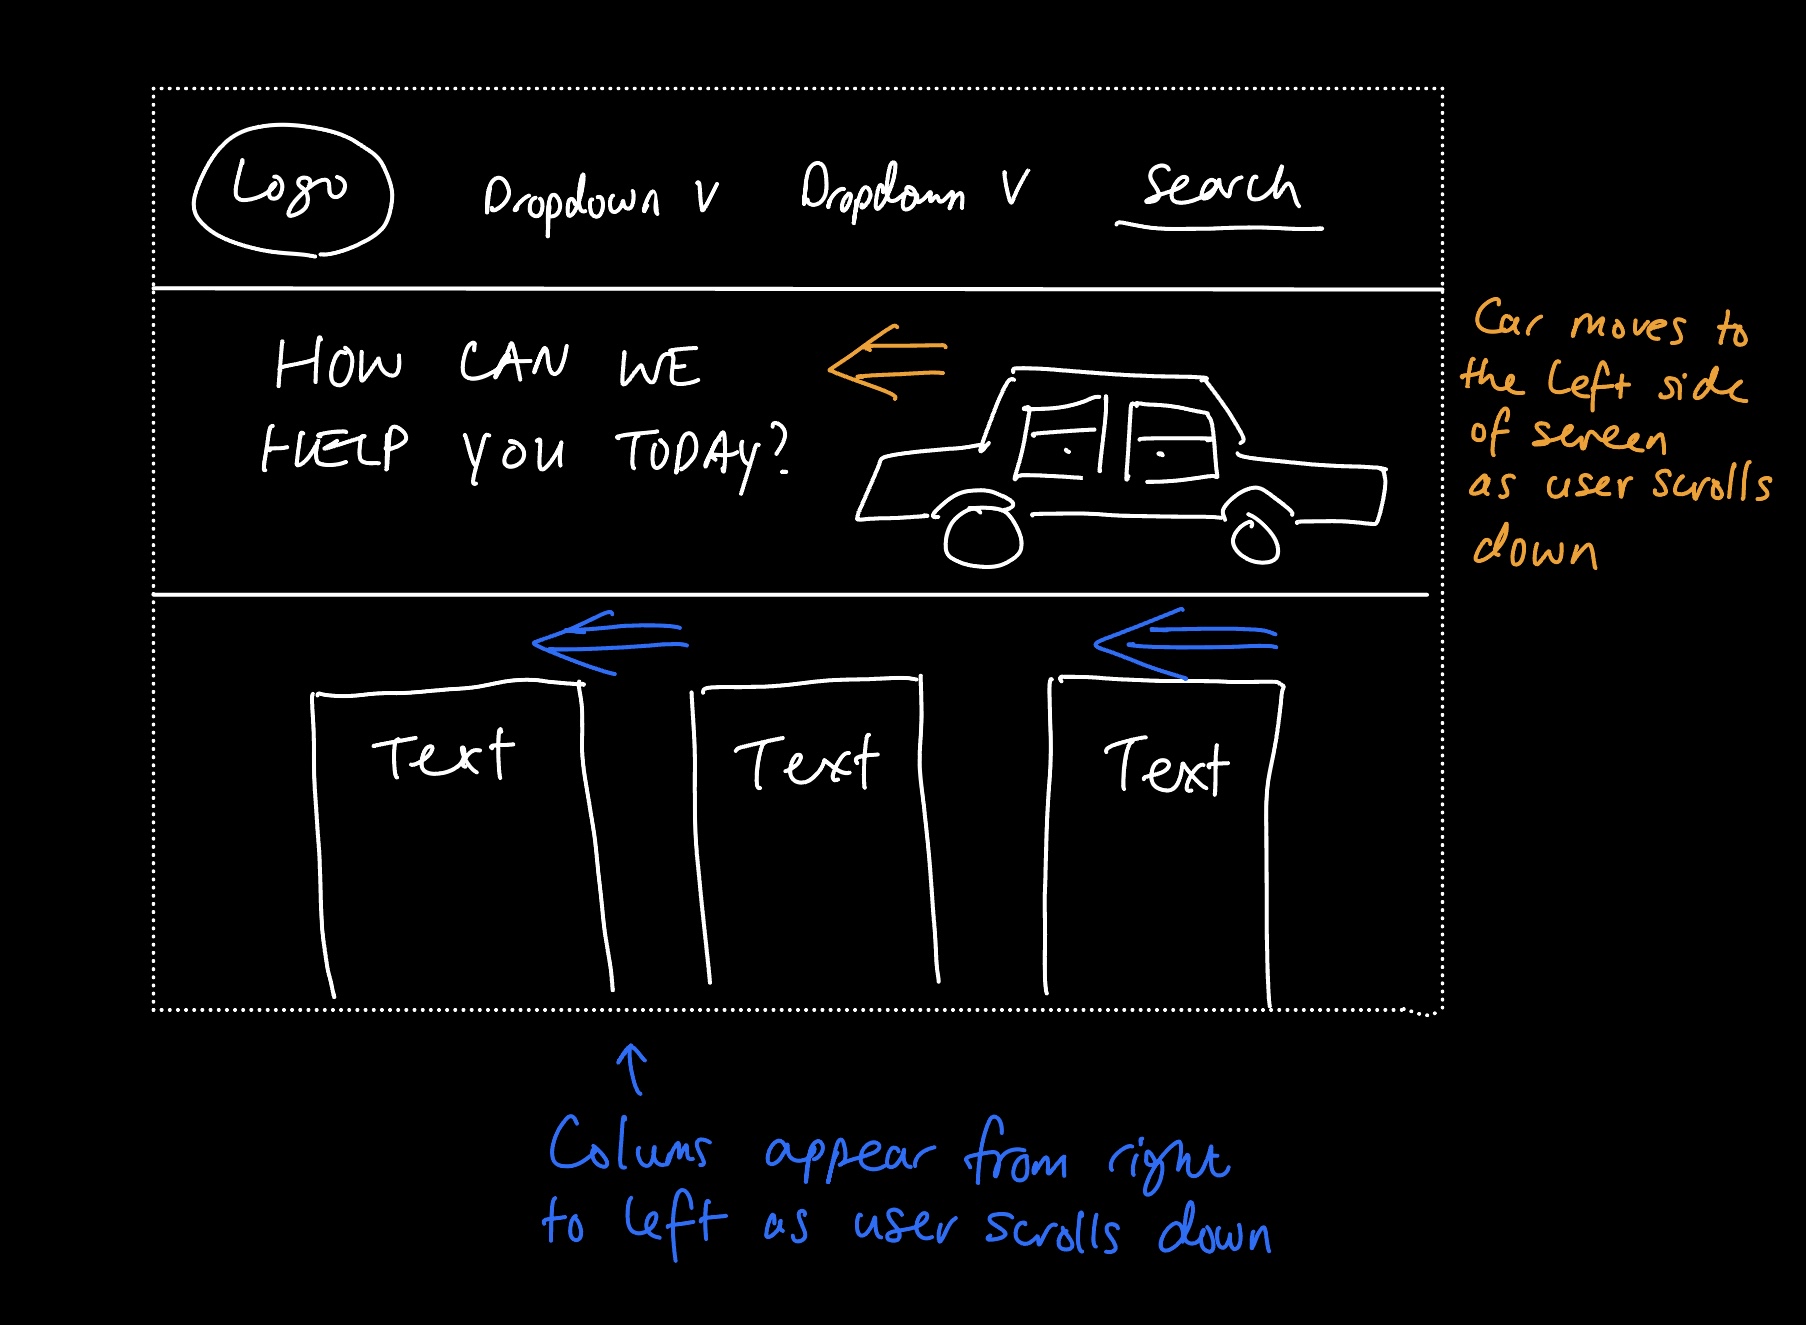 Logo
Dropdown V
Dropdown V
Search
HOW CAN WE
HELP YOU TODAY?
Car moves to
the left side
of screen
as user scrolls
down
Text
Text
Text
Colums appear from right
to left as user scrolls down